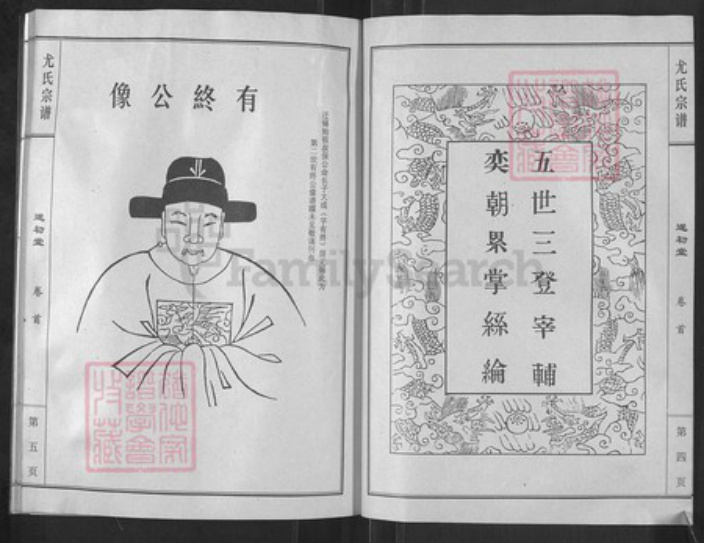 尤氏宗谱
遂初堂
卷首
第四页
五世三登宰輔
奕朝累掌絲綸
有終公像
尤氏宗谱
遂初堂
卷首
第五页
FamilySearch